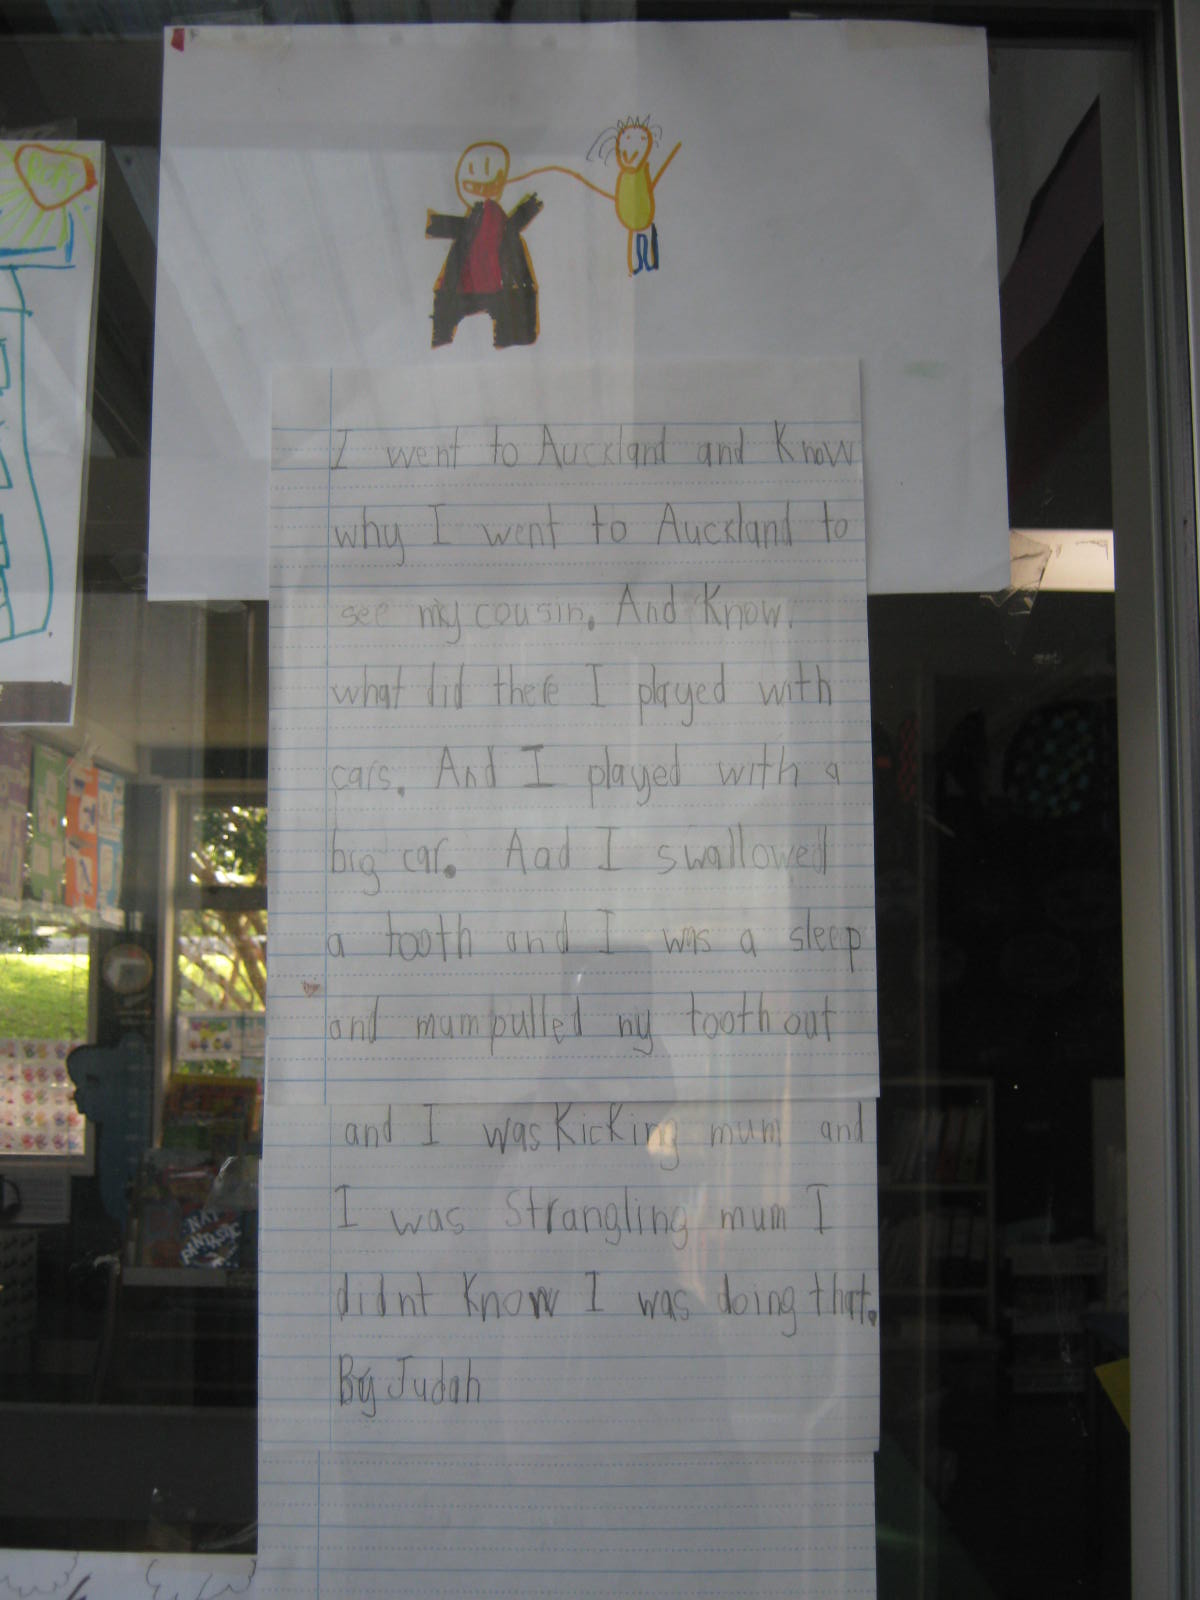 I went to Auckland and Know
why I went to Auckland to
see my cousin. And Know.
what did there I played with
cars. And I played with a
big car. Aad I swallowed
a tooth and I was a sleep
and mum pulled my tooth out
and I was Kicking mum and
I was Strangling mum I
didnt Know I was doing that.
By Judah